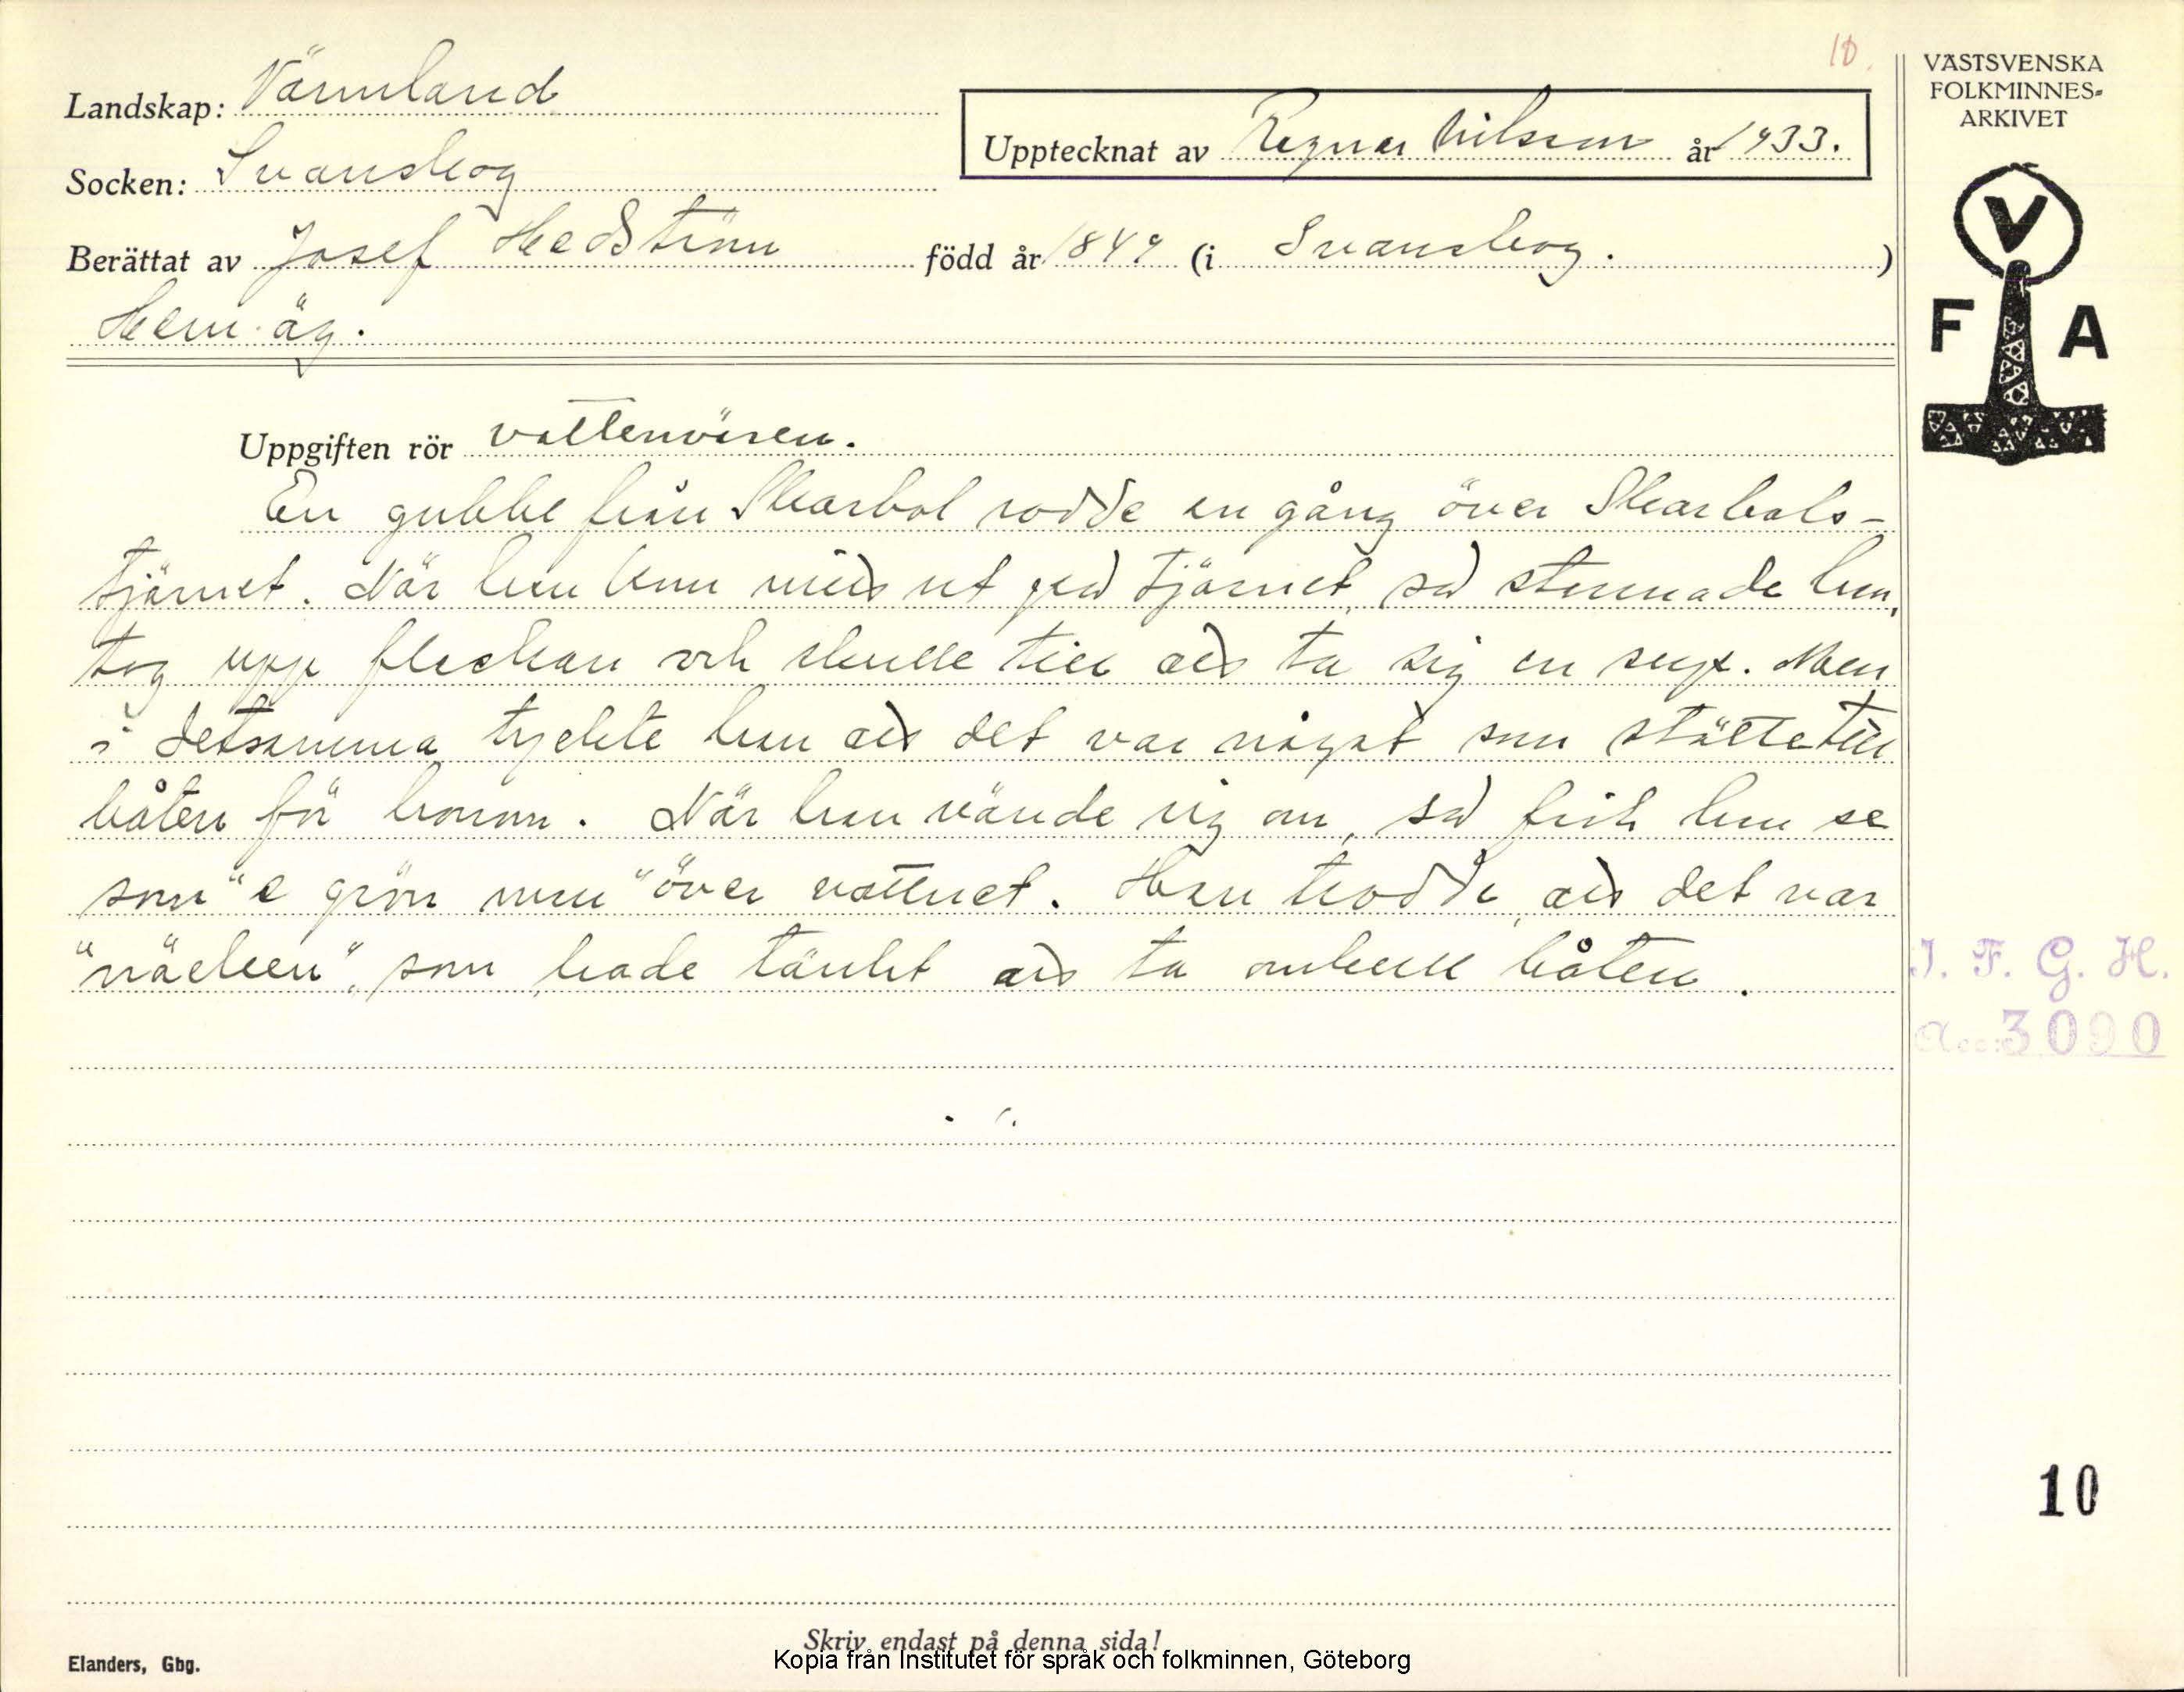 10.
Landskap: Värmland
Upptecknat av Ragnar Nilsson år 1933.
Socken: Svanskog
Berättat av Josef Hedström född år 1849 (i Svanskog.)
Hem.äg.
VÄSTSVENSKA
FOLKMINNES-
ARKIVET
V
F A
Uppgiften rör vattenväsen.
En gubbe från Skarbol rodde en gång över Skarbols-
tjärnet. När han kom mitt ut på tjärnet, så stannade han,
tog upp fleckan och skulle till att ta sig en sup. Men
i detsamma tyckte han att det var något som stötte till
båten för honom. När han vände sig om, så fick han se
som "e grön" över vattnet. Han trodde, att det var
"näcken", som hade tänkt att ta omkull båten.
I. F. G. H.
Acc: 3090
10
Skriv endast på denna sida!
Kopia från Institutet för språk och folkminnen, Göteborg
Elanders, Gbg.